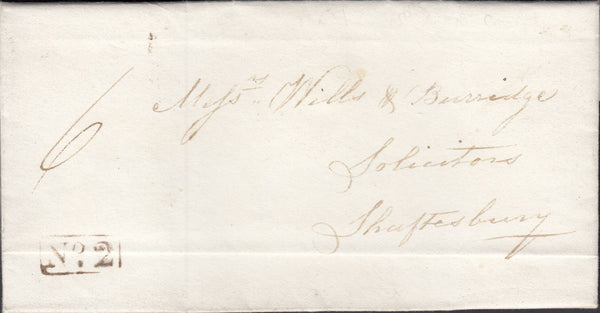 Messrs. Wills & Burridge
Solicitors
Shaftesbury
6
No. 2